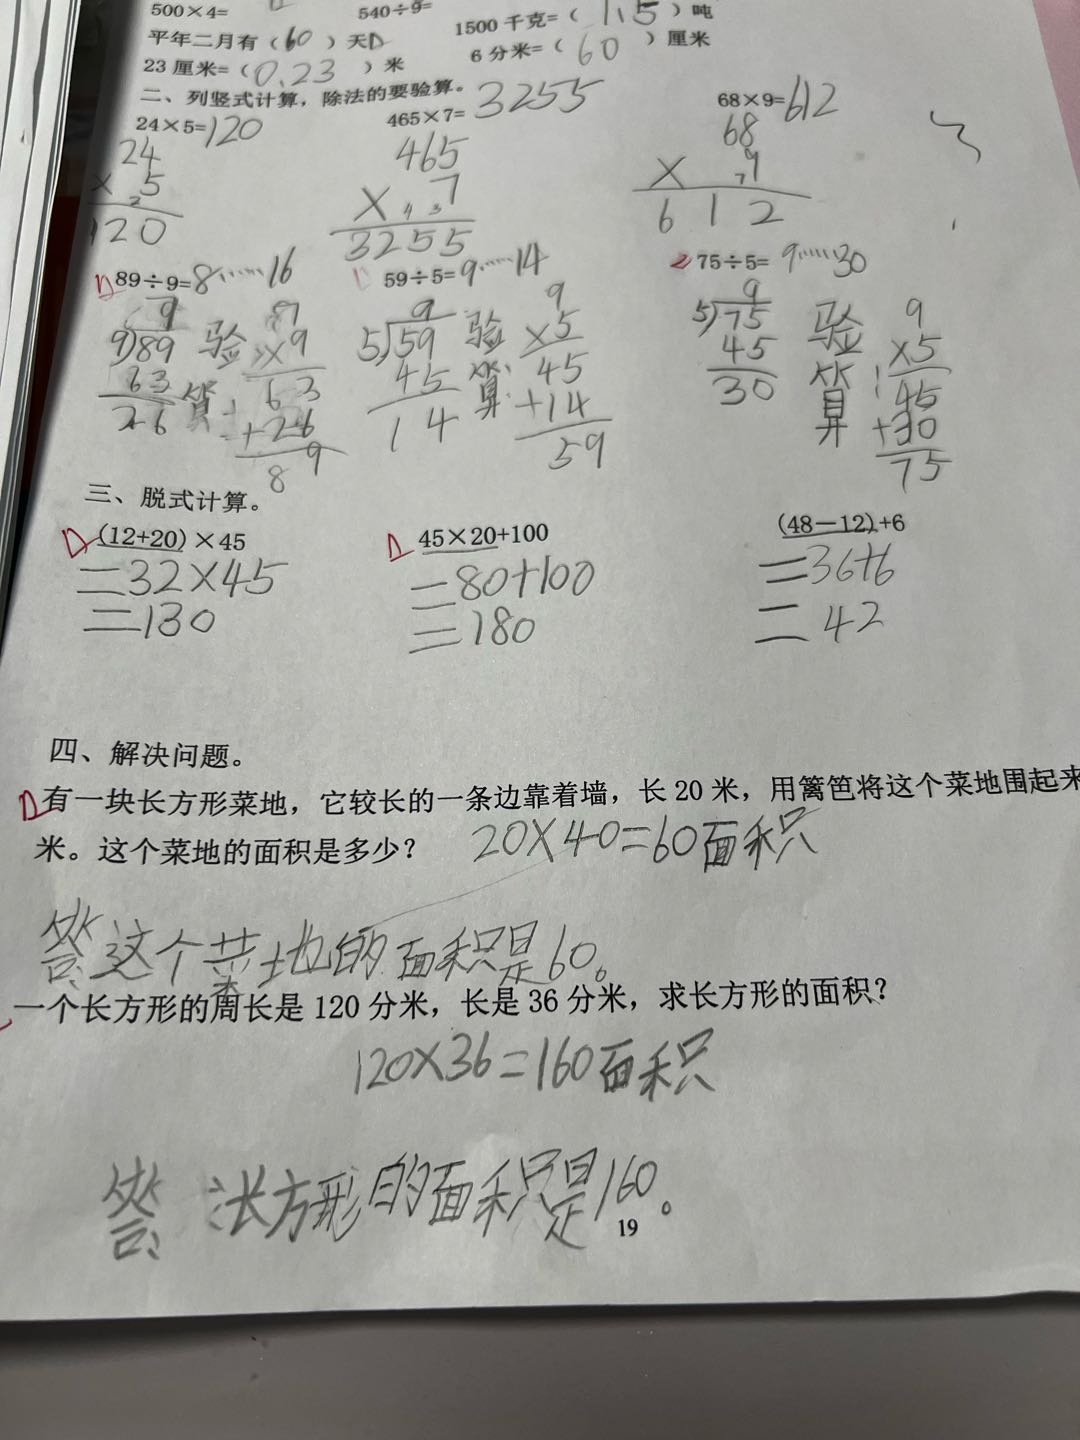 500×4=
540÷9=
1500 千克=( 1.5 )吨
平年二月有( 60 )天
6 分米=( 60 )厘米
23 厘米=( 0.23 )米
二、列竖式计算，除法的要验算。
24×5=120
465×7=3255
68×9=612
24
× 5
120
465
× 7
3255
68
× 9
6 1 2
89÷9=8……16
59÷5=9……14
75÷5=9……30
9
9)89
63
26
验算:
×9
63
+26
89
9
5)59
45
14
验算:
9
×5
45
+14
59
9
5)75
45
30
验算:
9
×5
45
+30
75
三、脱式计算。
(12+20)×45
=32×45
=130
45×20+100
=80+100
=180
(48－12)+6
=36+6
=42
四、解决问题。
有一块长方形菜地，它较长的一条边靠着墙，长 20 米，用篱笆将这个菜地围起来
米。这个菜地的面积是多少？
20×40=60面积
答:这个菜地的面积是60。
一个长方形的周长是 120 分米，长是 36 分米，求长方形的面积？
120×36=160面积
答:长方形的面积是160。
19